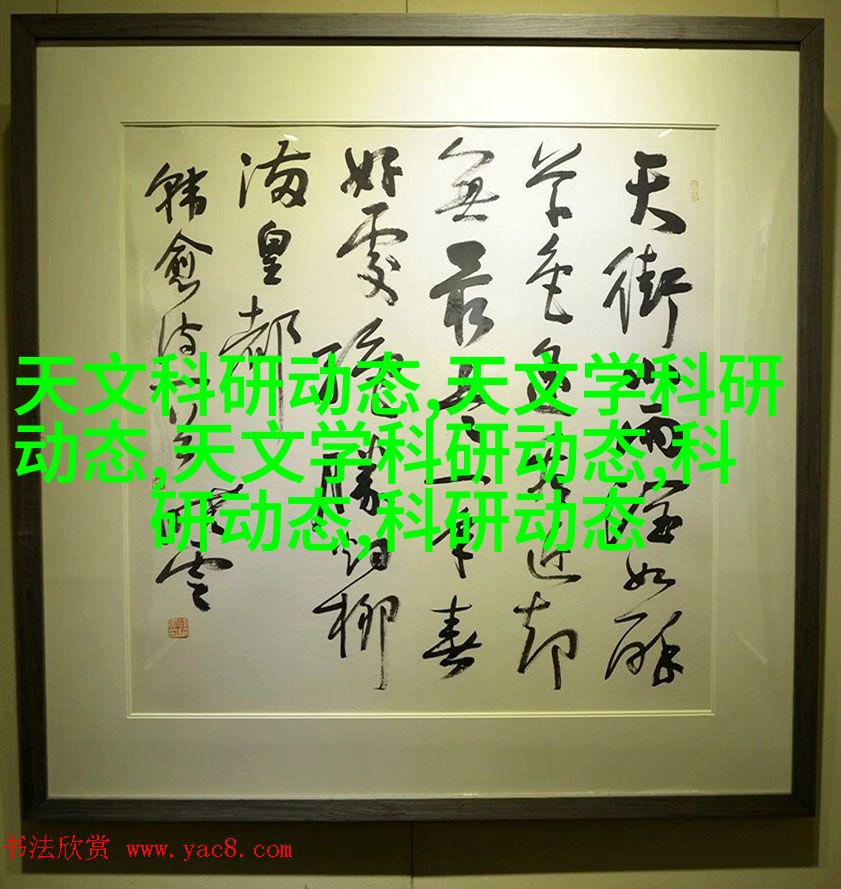 天街小雨潤如酥
草色遥看近却
無最是一年春
好處絕勝烟柳
滿皇都
韓愈詩
天文科研动态,天文学科研
动态,天文学科研动态,科
研动态,科研动态
书法欣赏 www.yac8.com